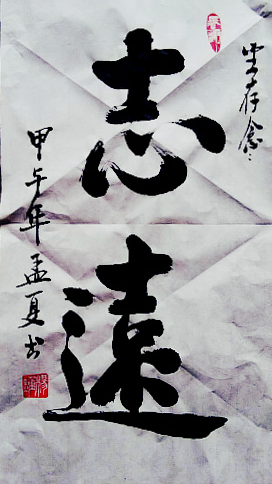 存念
志遠
甲午年孟夏书